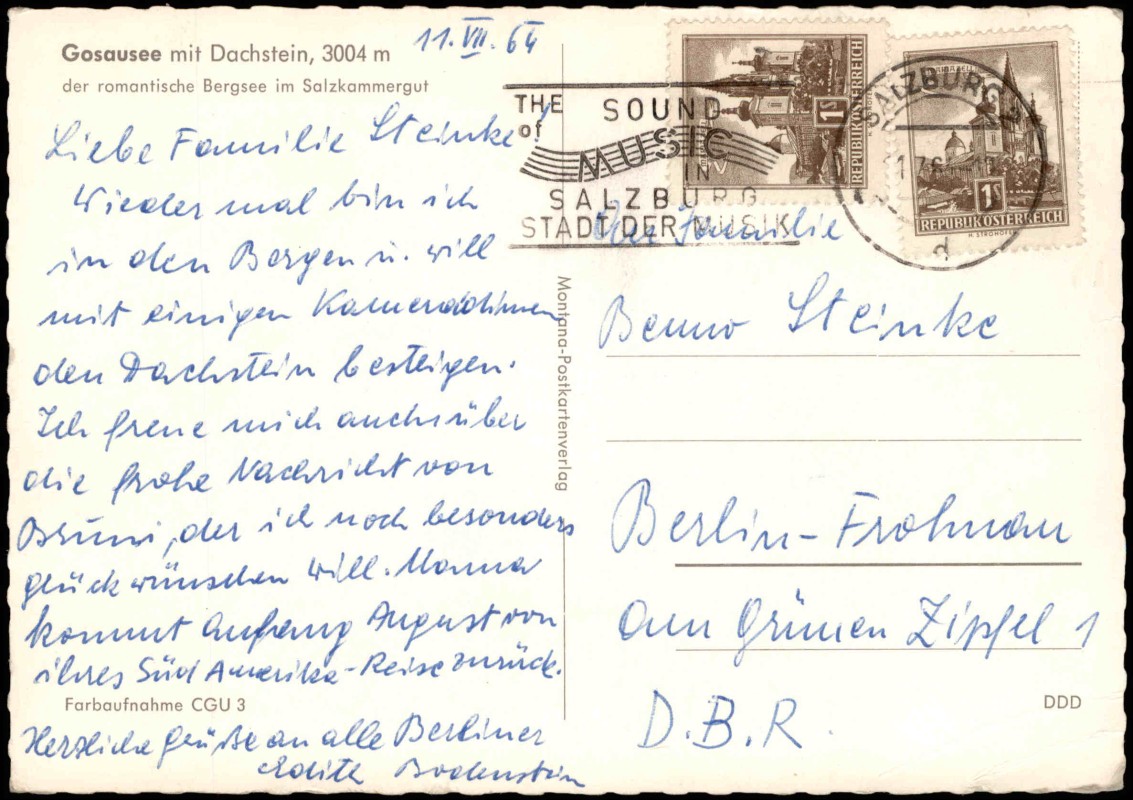 Gosausee mit Dachstein, 3004 m
der romantische Bergsee im Salzkammergut
11. VII. 64
Liebe Familie Steinke!
Wieder mal bin ich
in den Bergen u. will
mit einigen Kameradinnen
den Dachstein besteigen.
Ich freue mich auch über
die frohe Nachricht von
Bruni, der ich noch besonders
glückwünschen will. Mama
kommt Anfang August von
ihres Süd Amerika-Reise zurück.
Farbaufnahme CGU 3
Herzliche Grüße an alle Berliner
Edith Bodenstein
Montana-Postkartenverlag
THE SOUND
of MUSIC
IN
SALZBURG
STADT DER MUSIK
1S
REPUBLIK ÖSTERREICH
SALZBURG
d
1S
REPUBLIK ÖSTERREICH
Familie
Benno Steinke
Berlin-Frohnau
am Grünen Zipfel 1
D.B.R.
DDD